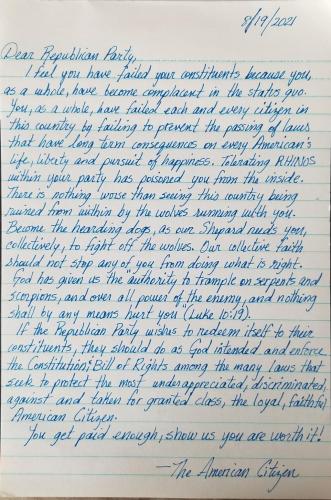 8/19/2021
Dear Republican Party,
I feel you have failed your constituents because you,
as a whole, have become complacent in the status quo.
You, as a whole, have failed each and every citizen in
this country by failing to prevent the passing of laws
that have long term consequences on every American's
life, liberty and pursuit of happiness. Tolerating RHINOS
within your party has poisoned you from the inside.
There is nothing worse than seeing this country being
ruined from within by the wolves running with you.
Become the hearding dogs, as our Shepard needs you,
collectively, to fight off the wolves. Our collective faith
should not stop any of you from doing what is right.
God has given us the "authority to trample on serpents and
scorpions, and over all power of the enemy, and nothing
shall by any means hurt you" (Luke 10:19).
If the Republican Party wishes to redeem itself to their
constituents, they should go as God intended and enforce
the Constitution; Bill of Rights among the many laws that
seek to protect the most underappreciated, discriminated
against and taken for granted class, the loyal, faithful
American Citizen.
You get paid enough, show us you are worth it!
—The American Citizen